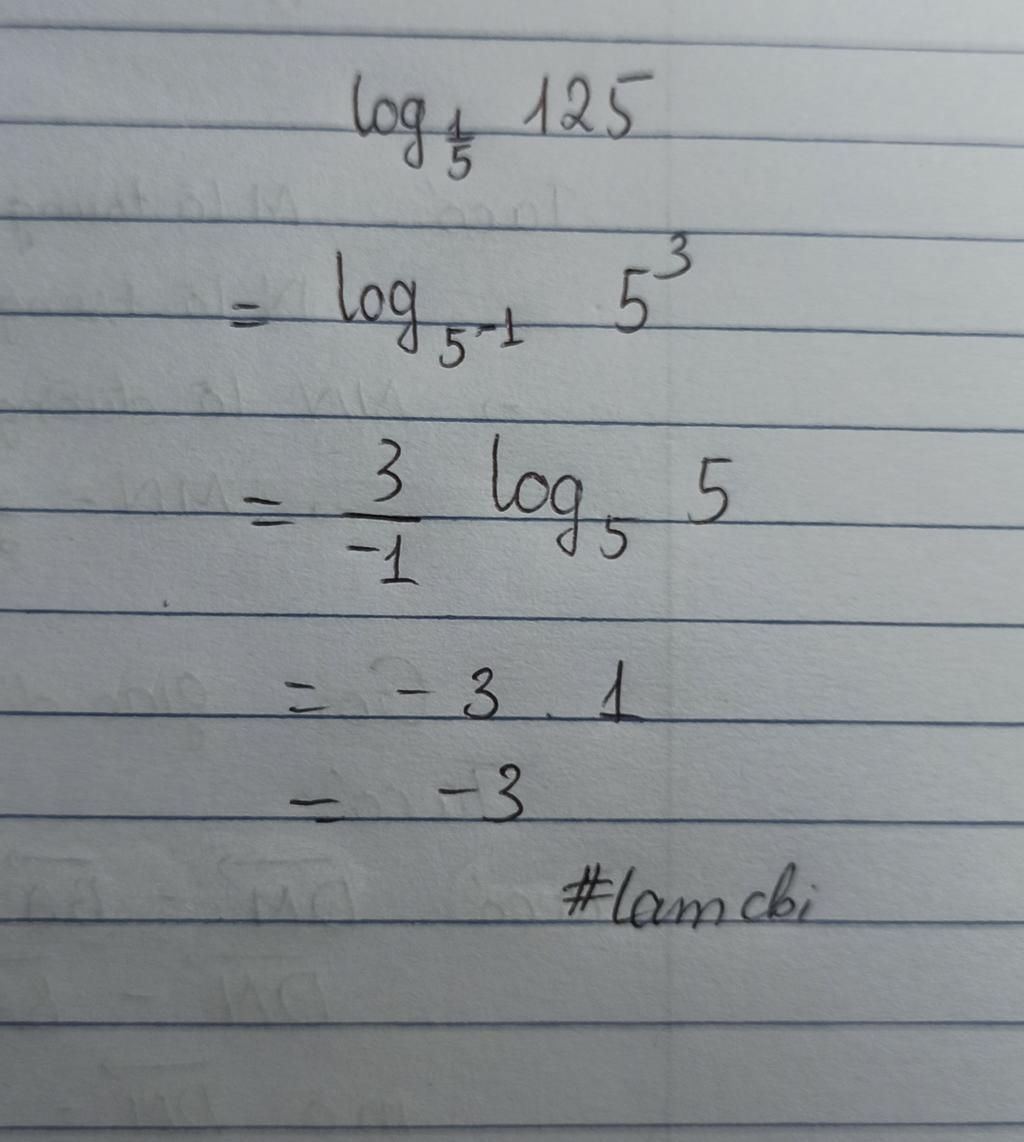 log_{1/5} 125
= log_{5^{-1}} 5^3
= 3/-1 log_5 5
= - 3 . 1
= -3
#lamchi